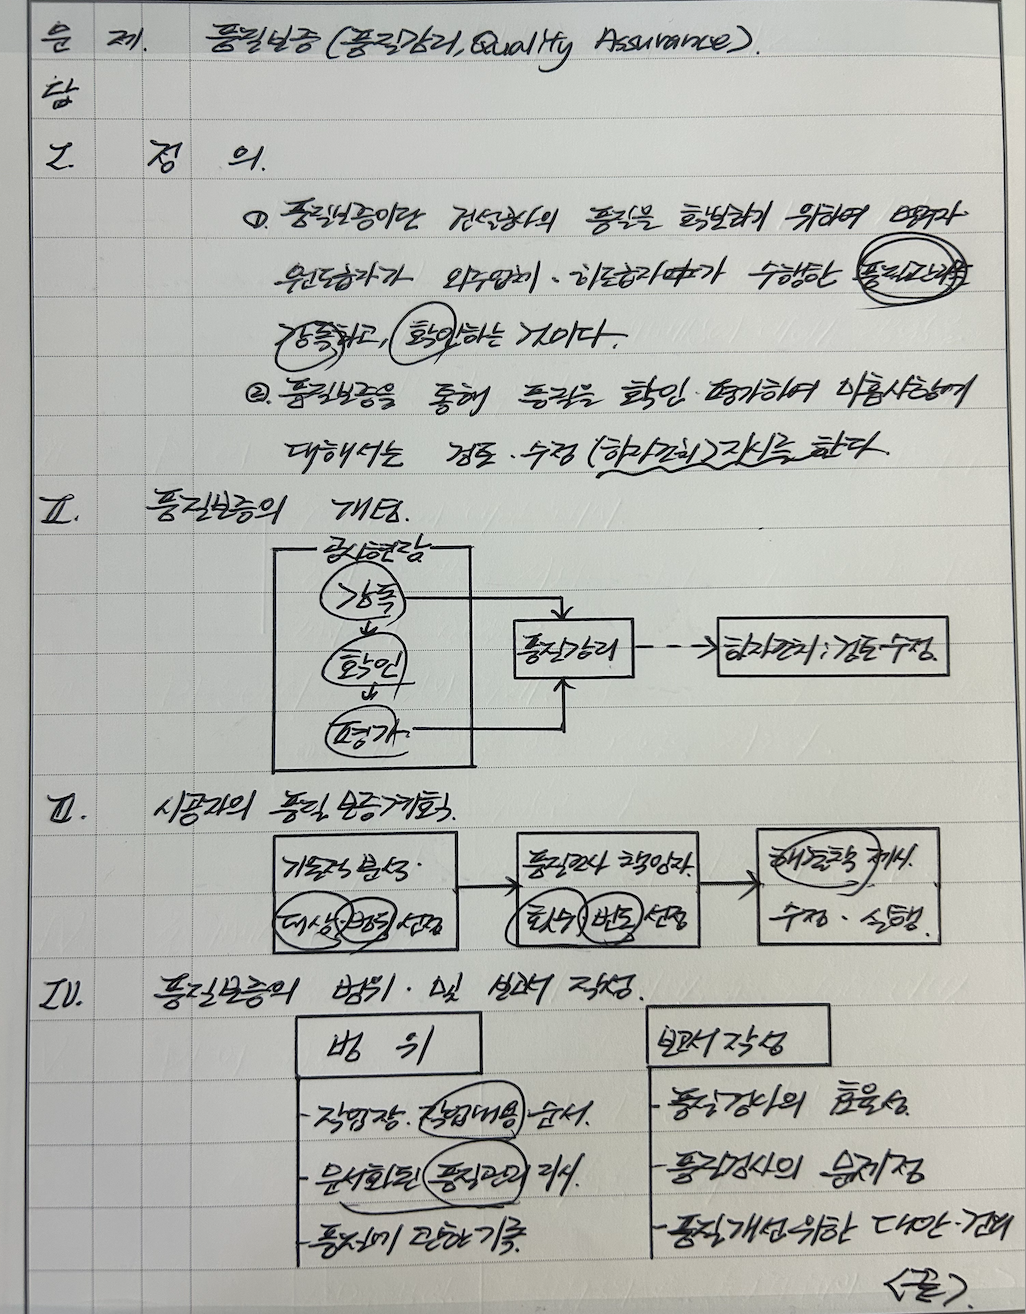 문 제. 품질보증(품질감리, Quality Assurance).
답
I. 정 의.
①. 품질보증이란 건설공사의 품질을 확보하기 위하여 발주자·
원도급자가 외주업체·하도급자가 수행한 품질관리를
감독하고, 확인하는 것이다.
②. 품질보증을 통해 품질을 확인·평가하여 미흡사항에
대해서는 검토·수정(하자조치) 지시를 한다.
II. 품질보증의 개념.
공사현장
감독
확인
평가
품질감리
하자조치: 검토·수정.
III. 시공자의 품질보증계획.
기술적 분석.
대상·범위 선정
품질조사 책임자.
횟수·빈도 선정
해결책 제시.
수정·실행.
IV. 품질보증의 범위. 및 보고서 작성.
범 위
- 작업장. 작업내용 순서.
- 문서화된 품질관리 지시.
- 품질에 관한 기록.
보고서 작성
- 품질검사의 효율성.
- 품질검사의 문제점
- 품질개선 위한 대안·건의
<끝>.